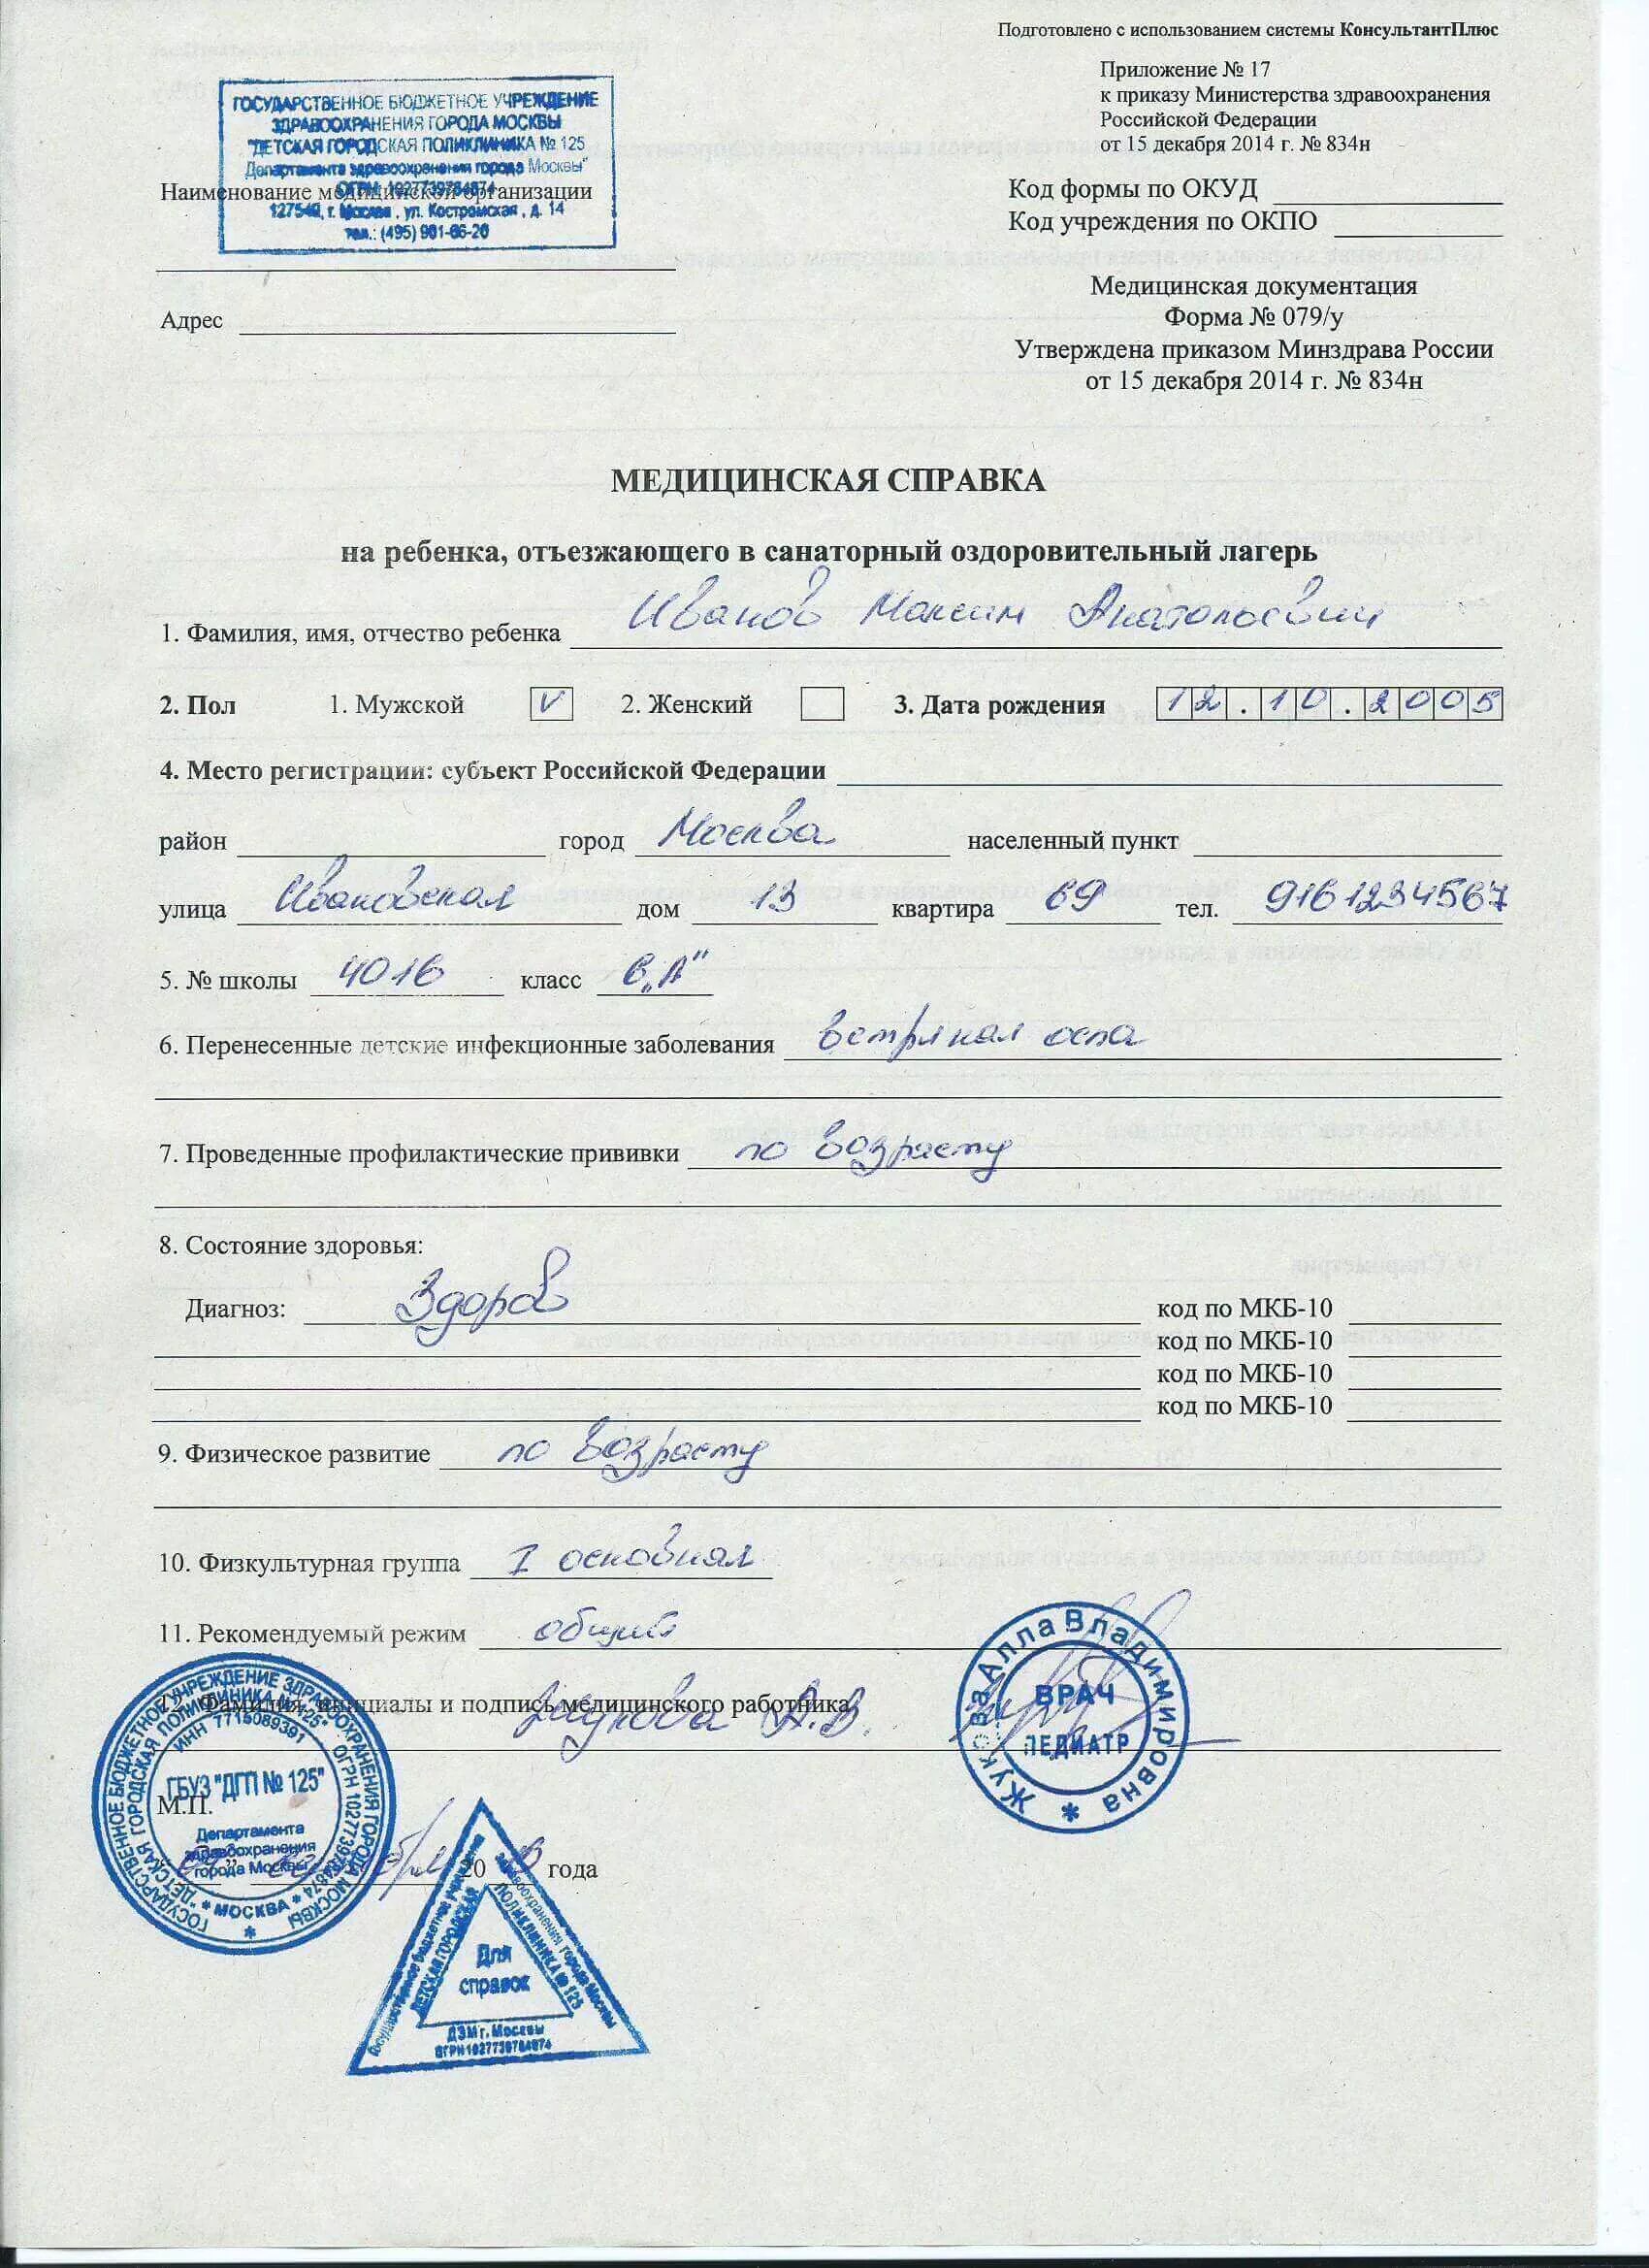 Подготовлено с использованием системы КонсультантПлюс
Приложение № 17
к приказу Министерства здравоохранения
Российской Федерации
от 15 декабря 2014 г. № 834н
ГОСУДАРСТВЕННОЕ БЮДЖЕТНОЕ УЧРЕЖДЕНИЕ
ЗДРАВООХРАНЕНИЯ ГОРОДА МОСКВЫ
"ДЕТСКАЯ ГОРОДСКАЯ ПОЛИКЛИНИКА № 125
Департамента здравоохранения города Москвы"
ОГРН 1027739784874
127549, г. Москва, ул. Костромская, д. 14
тел.: (495) 901-66-20
Наименование медицинской организации
Адрес
Код формы по ОКУД
Код учреждения по ОКПО
Медицинская документация
Форма № 079/у
Утверждена приказом Минздрава России
от 15 декабря 2014 г. № 834н
МЕДИЦИНСКАЯ СПРАВКА
на ребенка, отъезжающего в санаторный оздоровительный лагерь
1. Фамилия, имя, отчество ребенка Иванов Максим Анатольевич
2. Пол 1. Мужской V 2. Женский 3. Дата рождения 12.10.2005
4. Место регистрации: субъект Российской Федерации
район город Москва населенный пункт
улица Ивановская дом 13 квартира 69 тел. 9161234567
5. № школы 4016 класс 6 „А"
6. Перенесенные детские инфекционные заболевания ветряная оспа
7. Проведенные профилактические прививки по возрасту
8. Состояние здоровья:
Диагноз: Здоров код по МКБ-10
код по МКБ-10
код по МКБ-10
код по МКБ-10
9. Физическое развитие по возрасту
10. Физкультурная группа I основная
11. Рекомендуемый режим общий
12. Фамилия, инициалы и подпись медицинского работника
Жукова А.В.
Жукова Алла Владимировна *
ВРАЧ
ПЕДИАТР
М.П.
20 года
ГОСУДАРСТВЕННОЕ БЮДЖЕТНОЕ УЧРЕЖДЕНИЕ ЗДРАВООХРАНЕНИЯ ГОРОДА МОСКВЫ *
"ДЕТСКАЯ ГОРОДСКАЯ ПОЛИКЛИНИКА № 125" ОГРН 1027739784874 * МОСКВА *
ИНН 7715089391
ГБУЗ "ДГП № 125"
Департамента
здравоохранения
города Москвы
Государственное бюджетное учреждение здравоохранения города Москвы
ДЕТСКАЯ ГОРОДСКАЯ ПОЛИКЛИНИКА № 125
Для
справок
ДЗМ г. Москвы
ОГРН 1027739784874